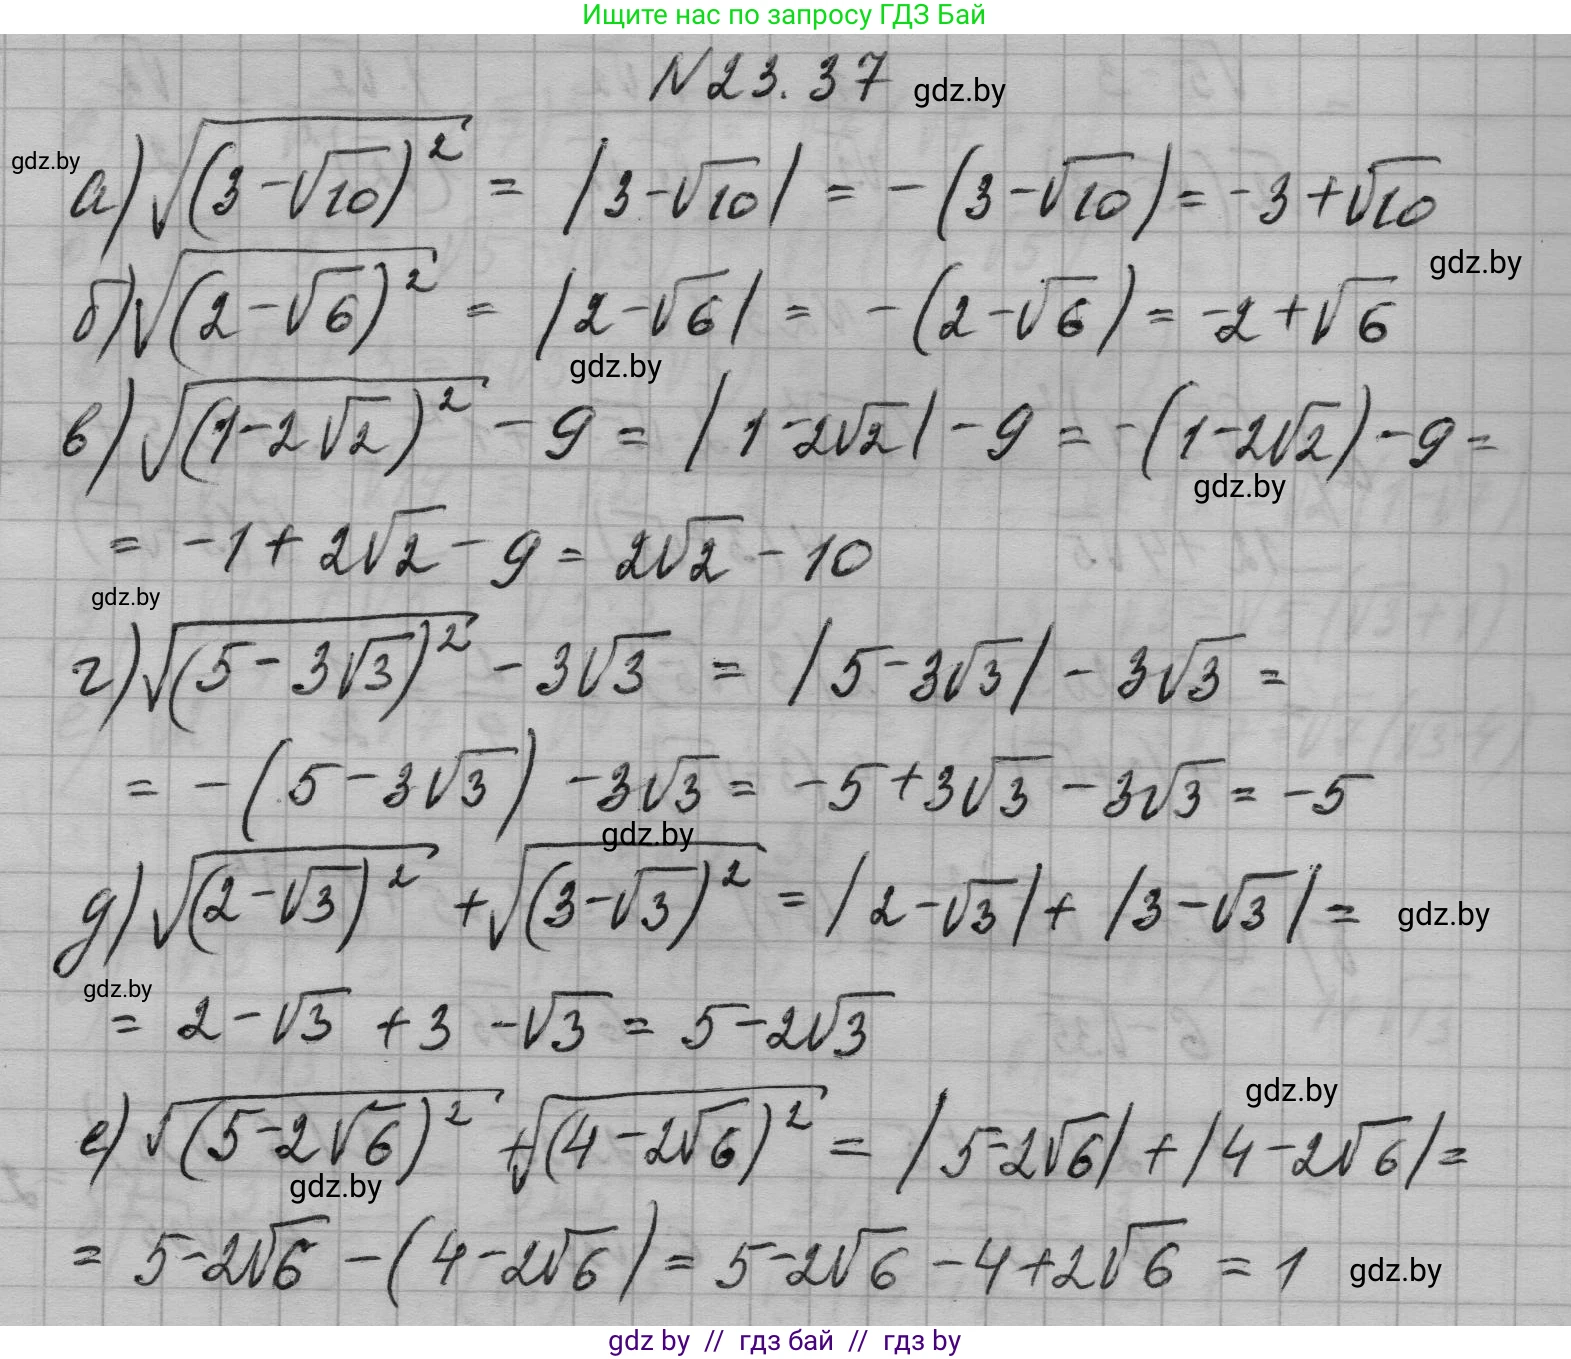 Ищите нас по запросу ГДЗ Бай
№ 23.37 gdz.by
gdz.by
а) √(3-√10)² = |3-√10| = -(3-√10) = -3+√10
gdz.by
б) √(2-√6)² = |2-√6| = -(2-√6) = -2+√6
gdz.by
в) √(1-2√2)² - 9 = |1-2√2| - 9 = -(1-2√2) - 9 =
gdz.by
= -1 + 2√2 - 9 = 2√2 - 10
gdz.by
г) √(5-3√3)² - 3√3 = |5-3√3| - 3√3 =
= -(5-3√3) - 3√3 = -5+3√3 - 3√3 = -5
gdz.by
д) √(2-√3)² + √(3-√3)² = |2-√3| + |3-√3| = gdz.by
gdz.by
= 2-√3 + 3 -√3 = 5-2√3
gdz.by
е) √(5-2√6)² + √(4-2√6)² = |5-2√6| + |4-2√6| =
gdz.by
= 5-2√6 - (4-2√6) = 5-2√6 - 4+2√6 = 1 gdz.by
gdz by // гдз бай // гдз by